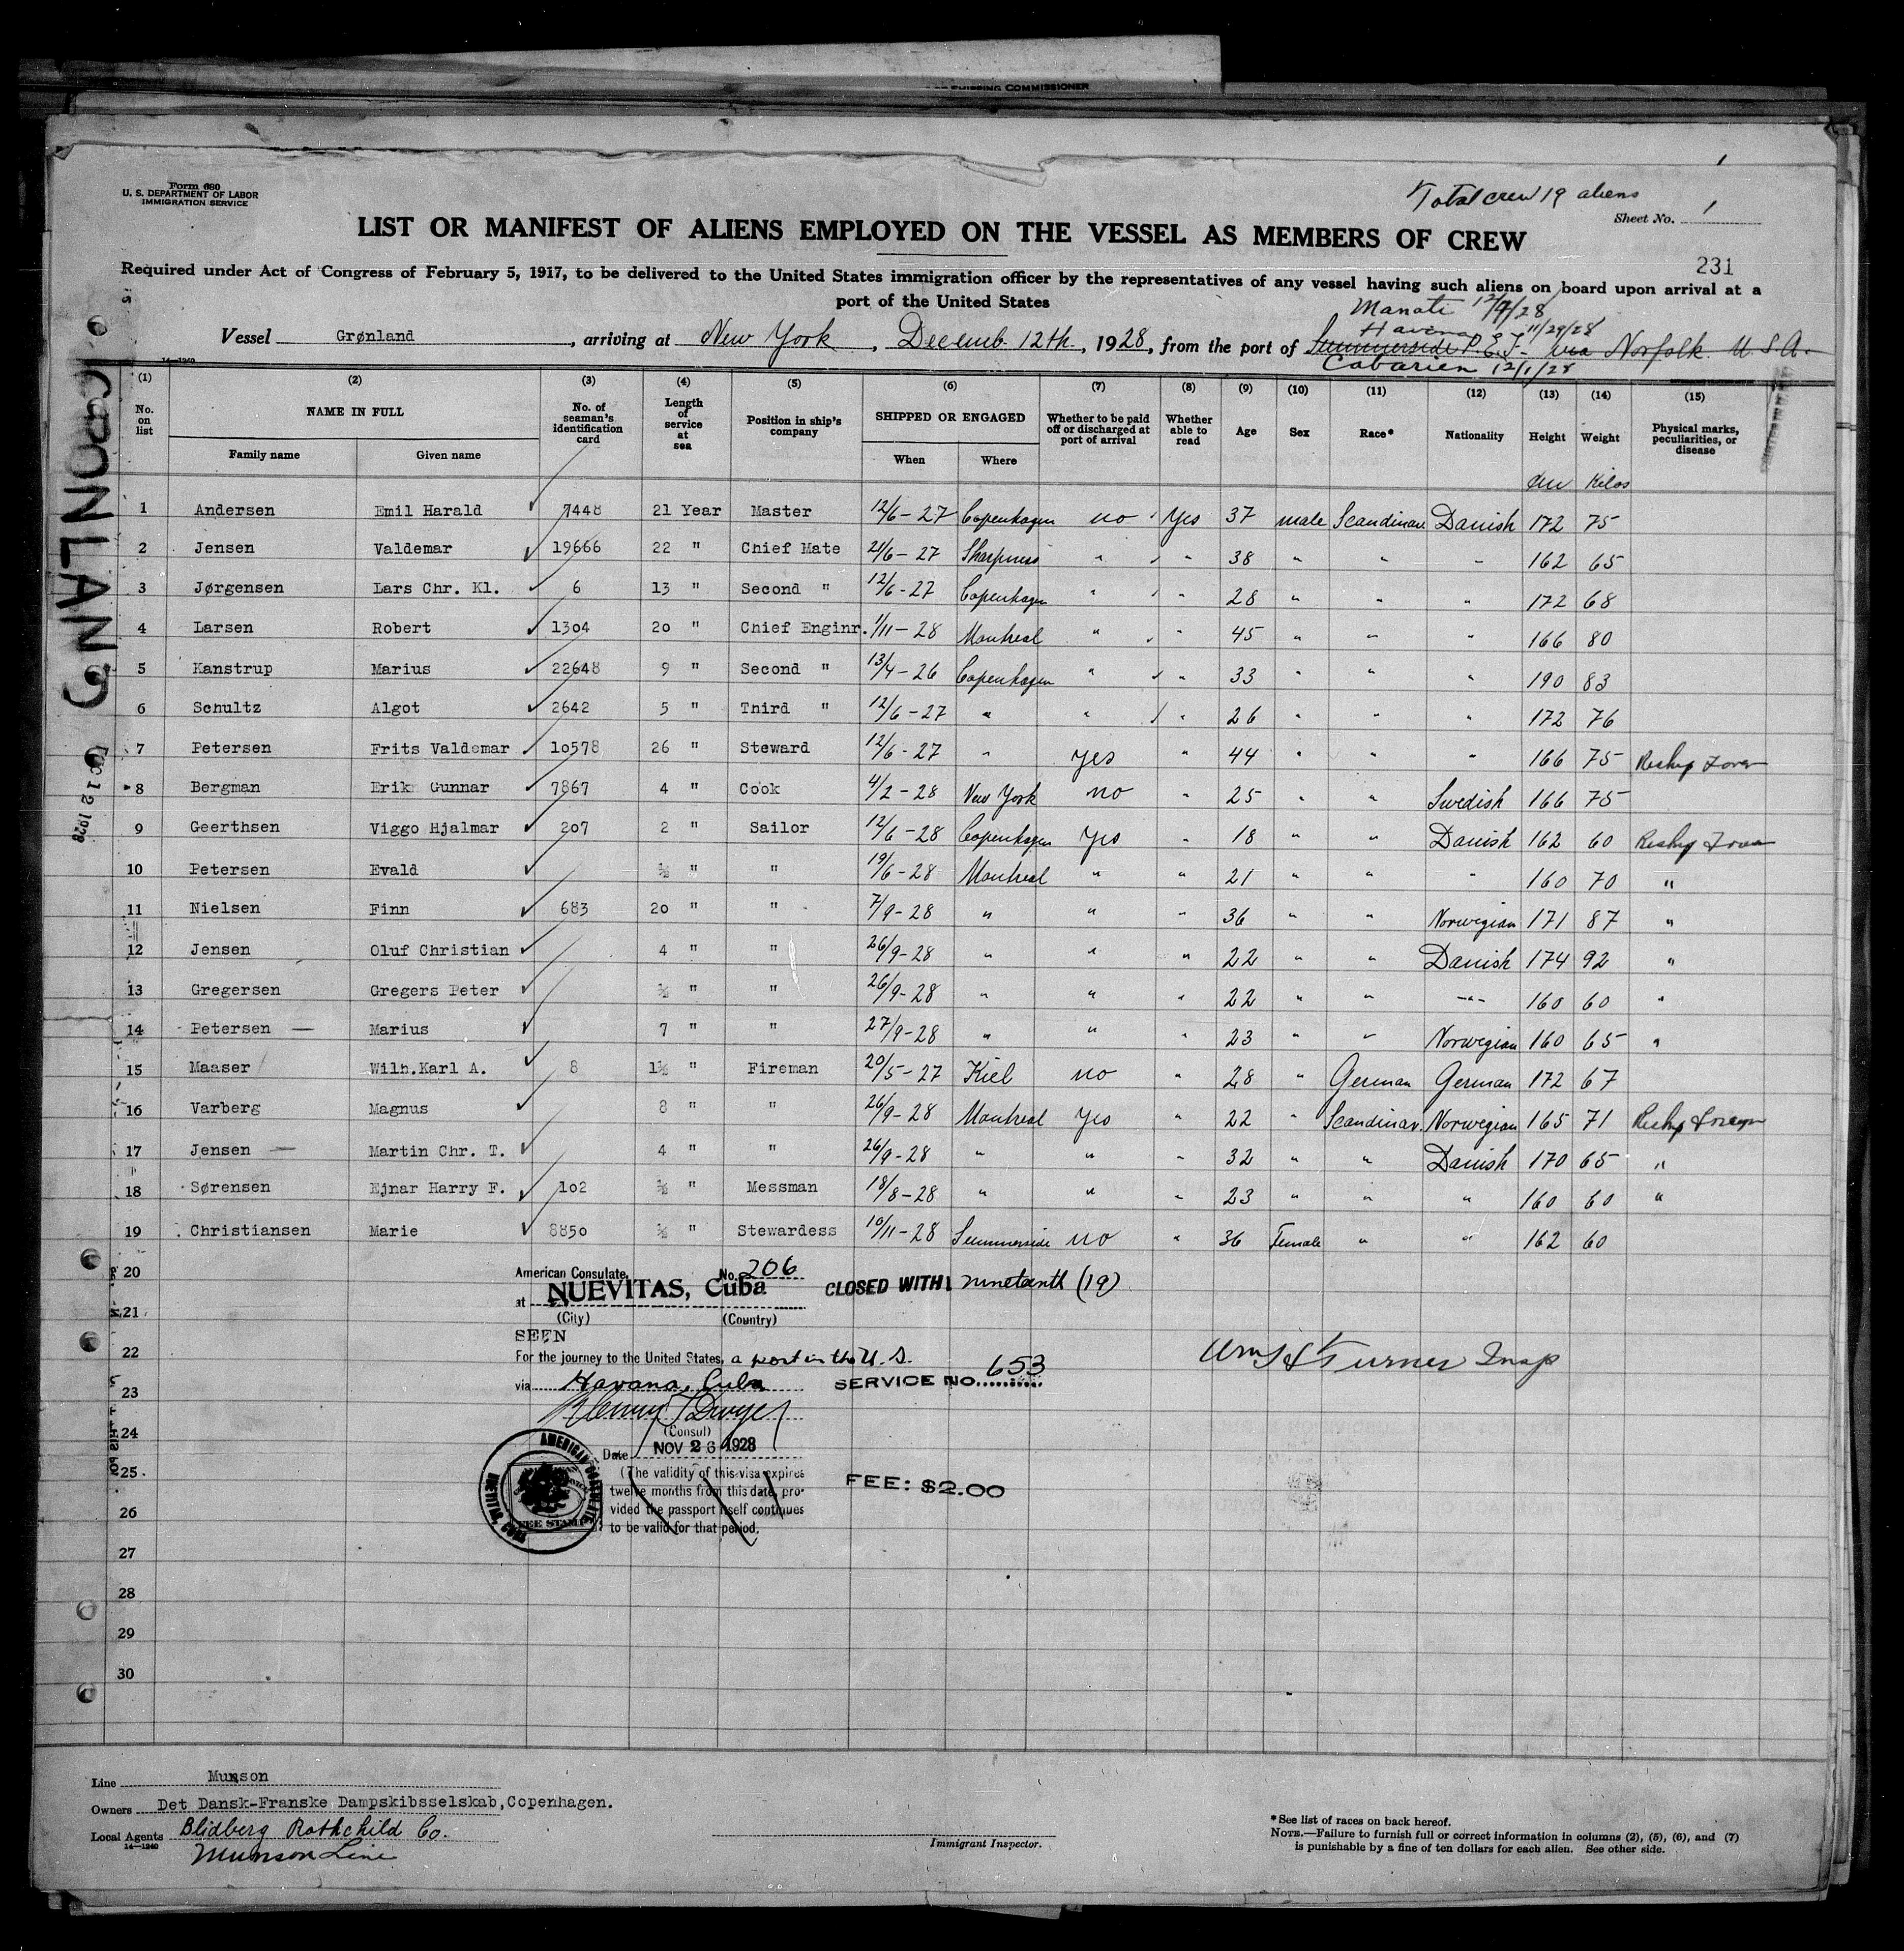 OF SHIPPING COMMISSIONER
1
Form 680
U. S. DEPARTMENT OF LABOR
IMMIGRATION SERVICE
Total crew 19 aliens
Sheet No. 1
LIST OR MANIFEST OF ALIENS EMPLOYED ON THE VESSEL AS MEMBERS OF CREW
231
Required under Act of Congress of February 5, 1917, to be delivered to the United States immigration officer by the representatives of any vessel having such aliens on board upon arrival at a
port of the United States
Manati 12/7/28
Havana 11/29/28
Vessel Grønland, arriving at New York, Decemb. 12th, 1928, from the port of Summerside P. E. I. via Norfolk U.S.A.
Cabarien 12/1/28
14-1240
(1) (2) (3) (4) (5) (6) (7) (8) (9) (10) (11) (12) (13) (14) (15)
No. on list NAME IN FULL No. of seaman's identification card Length of service at sea Position in ship's company SHIPPED OR ENGAGED Whether to be paid off or discharged at port of arrival Whether able to read Age Sex Race* Nationality Height Weight Physical marks, peculiarities, or disease
Family name Given name When Where
cm Kilos
1 Andersen Emil Harald 7448 21 Year Master 12/6-27 Copenhagen no Yes 37 male Scandinav. Danish 172 75
2 Jensen Valdemar 19666 22 " Chief Mate 21/6-27 Sharpness " " 38 " " " 162 65
3 Jørgensen Lars Chr. Kl. 6 13 " Second " 12/6-27 Copenhagen " " 28 " " " 172 68
4 Larsen Robert 1304 20 " Chief Enginr. 1/11-28 Montreal " " 45 " " " 166 80
5 Kanstrup Marius 22648 9 " Second " 13/4-26 Copenhagen " " 33 " " " 190 83
6 Schultz Algot 2642 5 " Third " 12/6-27 " " " 26 " " " 172 76
7 Petersen Frits Valdemar 10578 26 " Steward 12/6-27 " yes " 44 " " " 166 75 Reship Foreign
8 Bergman Erik Gunnar 7867 4 " Cook 4/2-28 New York no " 25 " " Swedish 166 75
9 Geerthsen Viggo Hjalmar 207 2 " Sailor 12/6-28 Copenhagen Yes " 18 " " Danish 162 60 Reship Foreign
10 Petersen Evald ½ " " 19/6-28 Montreal " " 21 " " " 160 70 "
11 Nielsen Finn 683 20 " " 7/9-28 " " " 36 " " Norwegian 171 87 "
12 Jensen Oluf Christian 4 " " 26/9-28 " " " 22 " " Danish 174 92 "
13 Gregersen Gregers Peter ½ " " 26/9-28 " " " 22 " " -"- 160 60 "
14 Petersen — Marius 7 " " 27/9-28 " " " 23 " " Norwegian 160 65 "
15 Maaser Wilh.Karl A. 8 1½ " Fireman 20/5-27 Kiel no " 28 " German German 172 67
16 Varberg Magnus 8 " " 26/9-28 Montreal Yes " 22 " Scandinav. Norwegian 165 71 Reship Foreign
17 Jensen — Martin Chr. T. 4 " " 26/9-28 " " " 32 " " Danish 170 65 "
18 Sørensen Ejnar Harry F. 102 ½ " Messman 18/8-28 " " " 23 " " " 160 60 "
19 Christiansen Marie 8850 ½ " Stewardess 10/11-28 Summerside no " 36 Female " " 162 60
20
21
22
23
24
25
26
27
28
29
30
American Consulate, No. 206
at NUEVITAS, Cuba
(City) (Country)
CLOSED WITH nineteenth (19)
SEEN
For the journey to the United States, a port in the U. S.
via Havana, Cuba
SERVICE NO. 653
Wm H Turner Insp
Henry T Dwyer
(Consul)
Date NOV 26 1928
(The validity of this visa expires
twelve months from this date, provided
the passport itself continues
to be valid for that period.
FEE: $2.00
AMERICAN CONSULATE
NUEVITAS, CUBA
FEE STAMP
GRONLAND
DEC 12 1928
Line Munson
Owners Det Dansk-Franske Dampskibsselskab,Copenhagen.
Local Agents Blidberg Rothchild Co.
14-1240
Munson Line
Immigrant Inspector.
*See list of races on back hereof.
NOTE.—Failure to furnish full or correct information in columns (2), (5), (6), and (7)
is punishable by a fine of ten dollars for each alien. See other side.